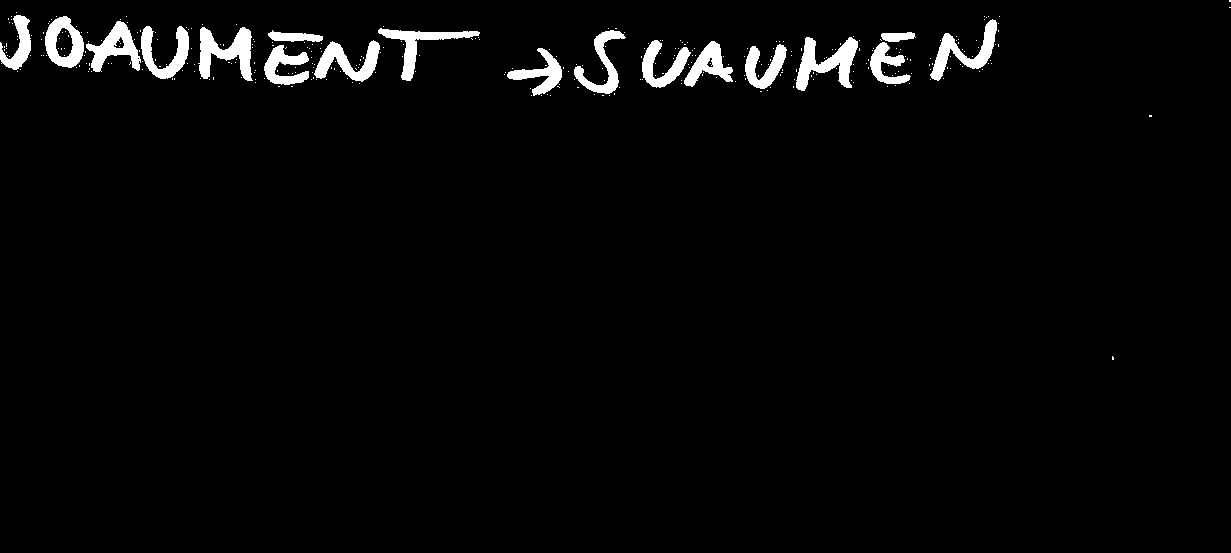 SOAUMENT → SUAUMEN